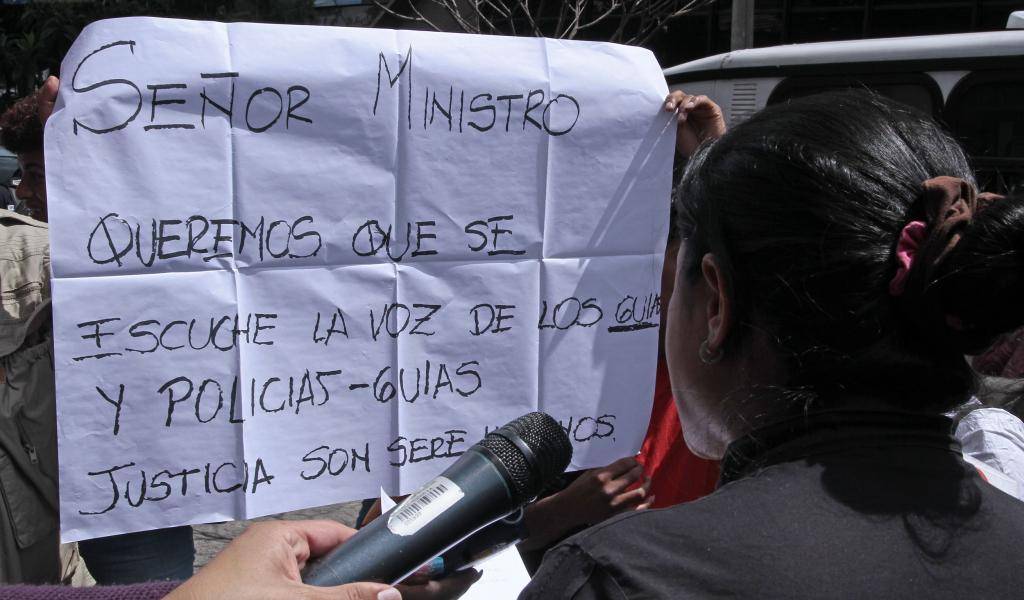 SEÑOR MINISTRO
QUEREMOS QUE SE
ESCUCHE LA VOZ DE LOS GUIAS
Y POLICIAS-GUIAS
JUSTICIA SON SERE